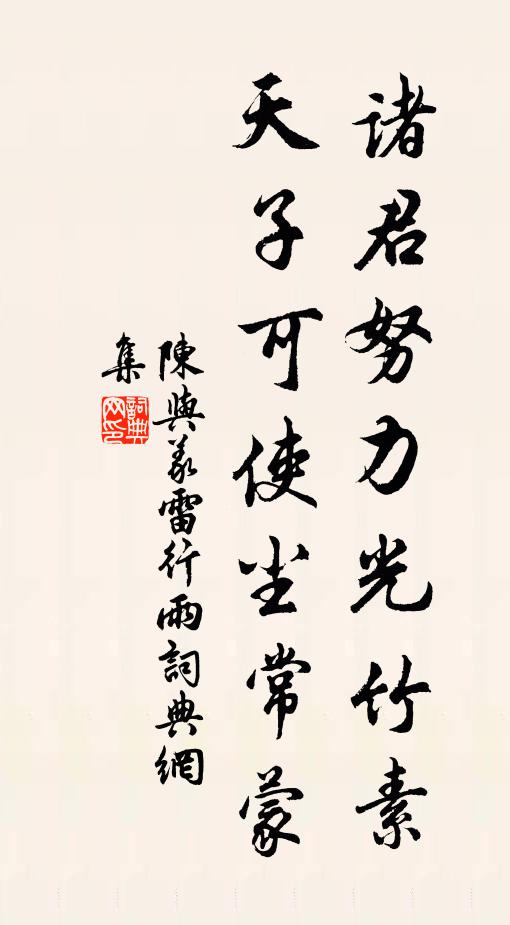 諸君努力光竹素
天子可使尘常蒙
陳與义雷行雨詞典網
集
詞典
网印